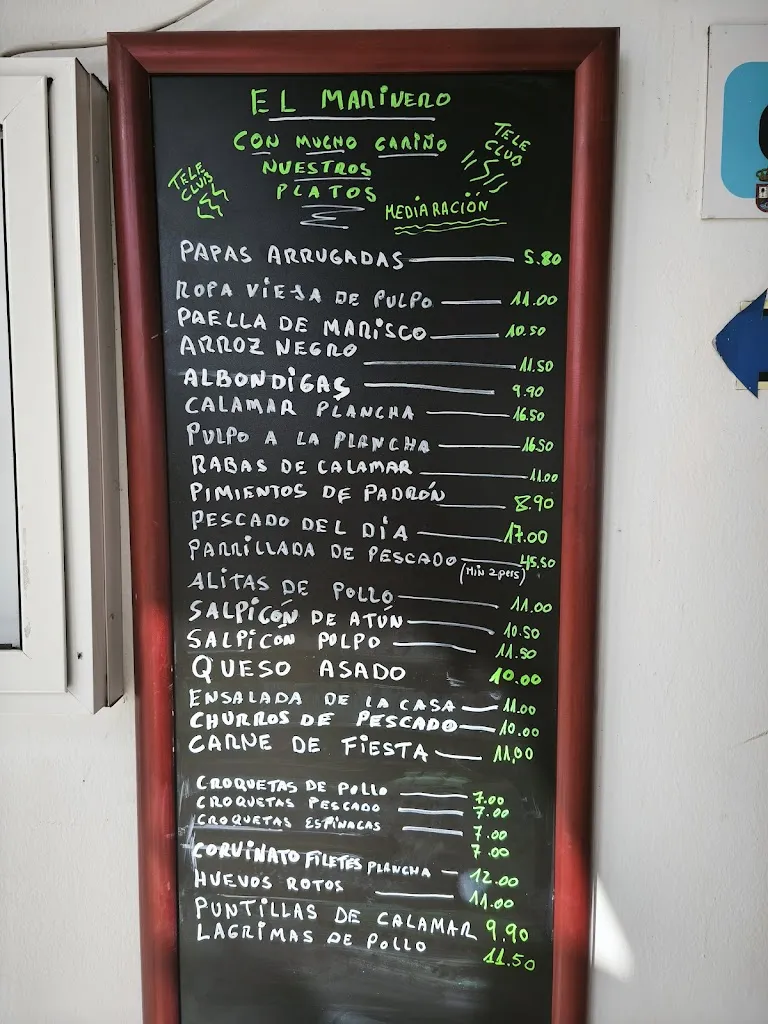 EL MARINERO
CON MUCHO CARIÑO
NUESTROS
PLATOS
TELE CLUB
TELE CLUB
MEDIA RACIÓN
PAPAS ARRUGADAS 5.80
ROPA VIEJA DE PULPO 11.00
PAELLA DE MARISCO 10.50
ARROZ NEGRO 11.50
ALBONDIGAS 9.90
CALAMAR PLANCHA 16.50
PULPO A LA PLANCHA 16.50
RABAS DE CALAMAR 11.00
PIMIENTOS DE PADRÓN 8.90
PESCADO DEL DIA 17.00
PARRILLADA DE PESCADO 45.50
(MIN 2 PERS)
ALITAS DE POLLO 11.00
SALPICÓN DE ATÚN 10.50
SALPICÓN PULPO 11.50
QUESO ASADO 10.00
ENSALADA DE LA CASA 11.00
CHURROS DE PESCADO 10.00
CARNE DE FIESTA 11,00
CROQUETAS DE POLLO 7.00
CROQUETAS PESCADO 7.00
CROQUETAS ESPINACAS 7.00
7.00
CORVINATO FILETES PLANCHA 12.00
HUEVOS ROTOS 11.00
PUNTILLAS DE CALAMAR 9.90
LAGRIMAS DE POLLO 11.50